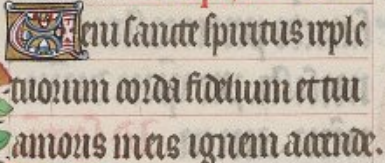 Veni sancte spiritus reple
tuorum corda fidelium et tui
amoris in eis ignem accende.